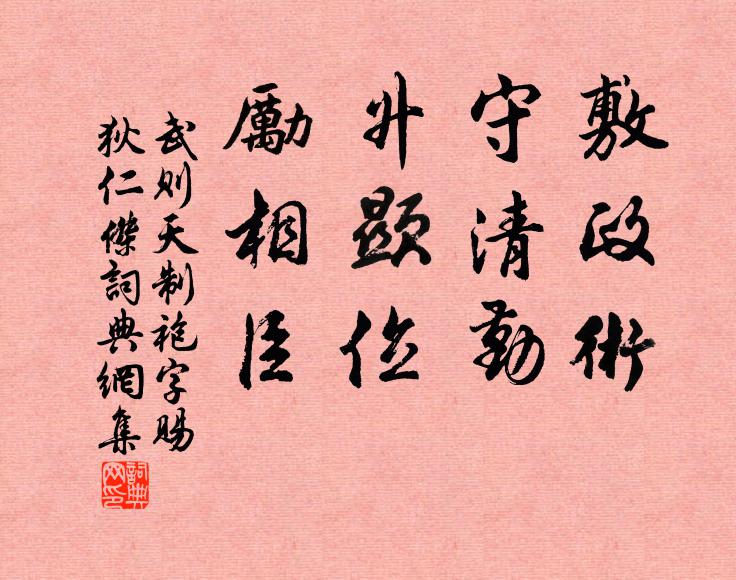 敷政術
守清勤
升顯位
勵相臣
武則天制袍字賜
狄仁傑詞典網集
詞典网印